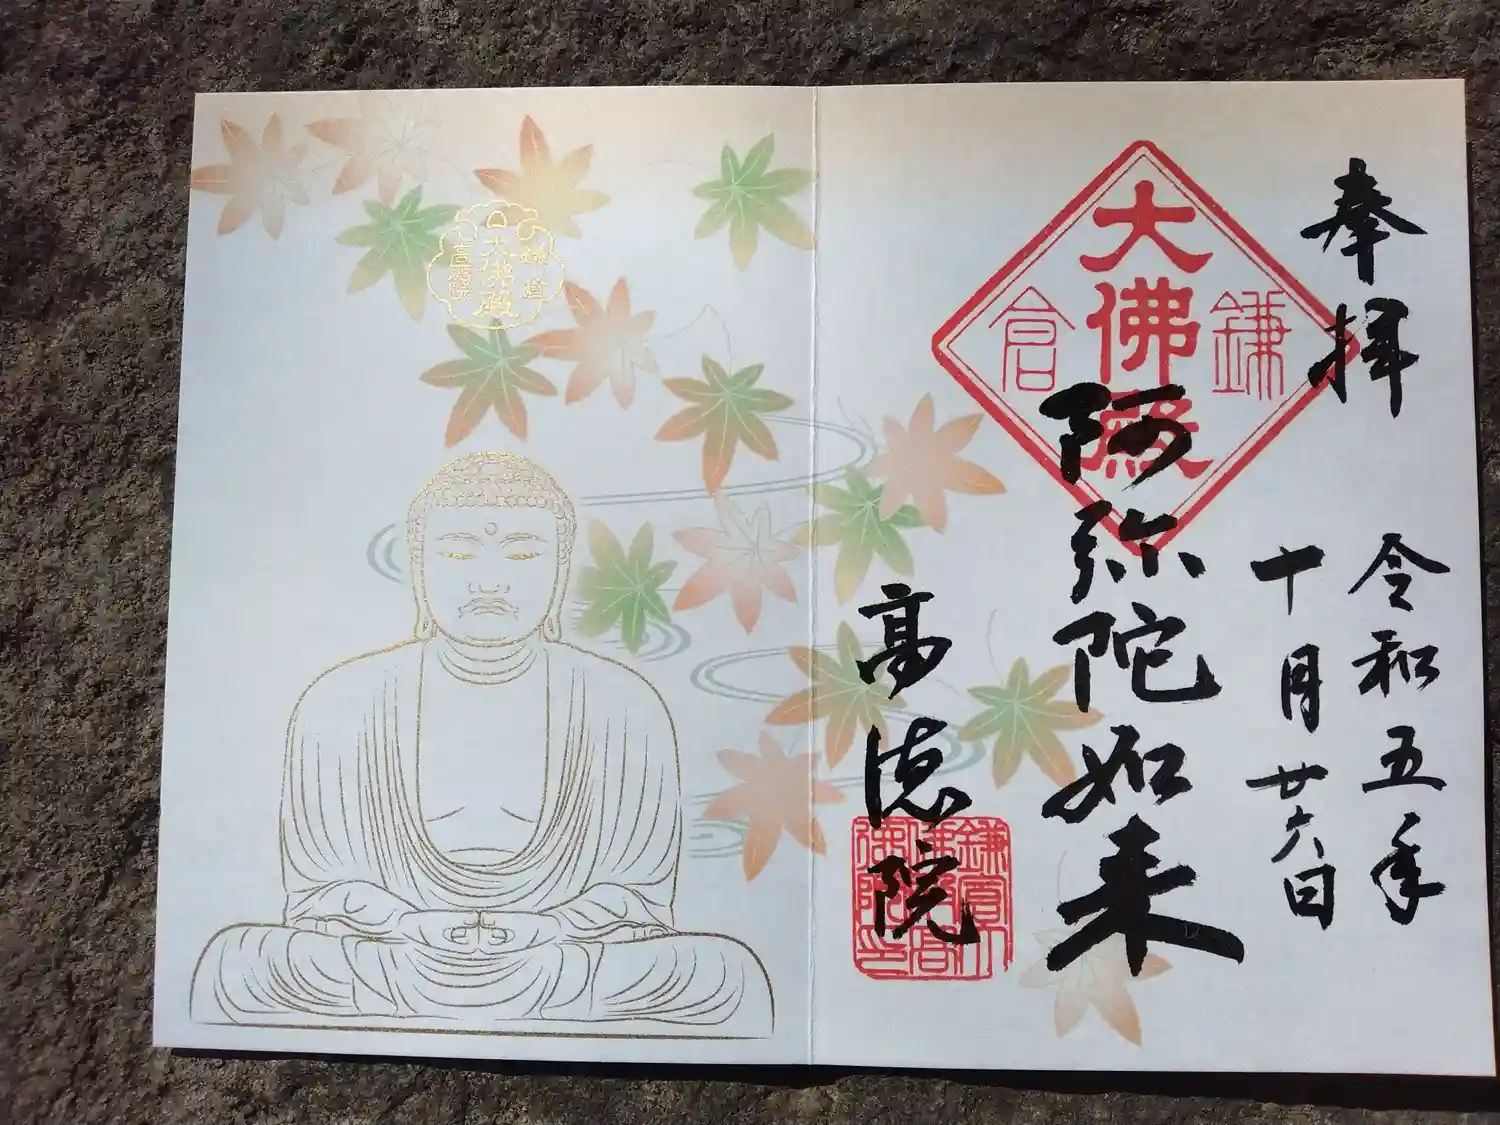 奉拝
令和五年
十月廿六日
鎌倉
大佛殿
阿弥陀如来
高徳院
鎌倉
大佛殿
高徳院